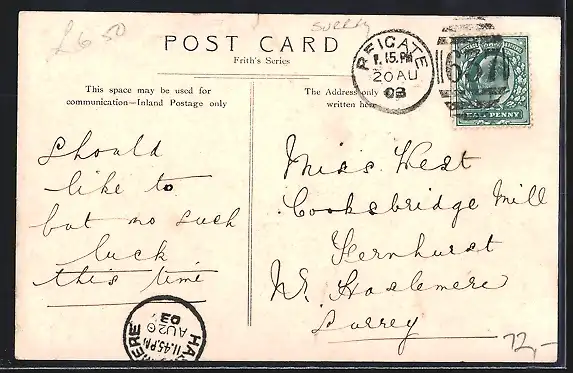 £6 50
SURREY
POST CARD
Frith's Series
This space may be used for
communication—Inland Postage only
The Address only
written here
REIGATE
15.PM
20 AU
03
HALF PENNY
Should
like to
but no such
luck
this time
Miss West
Cooksbridge Mill
Fernhurst
Nr. Haslemere
Surrey
11.45.PM
AU 20
03
72,-